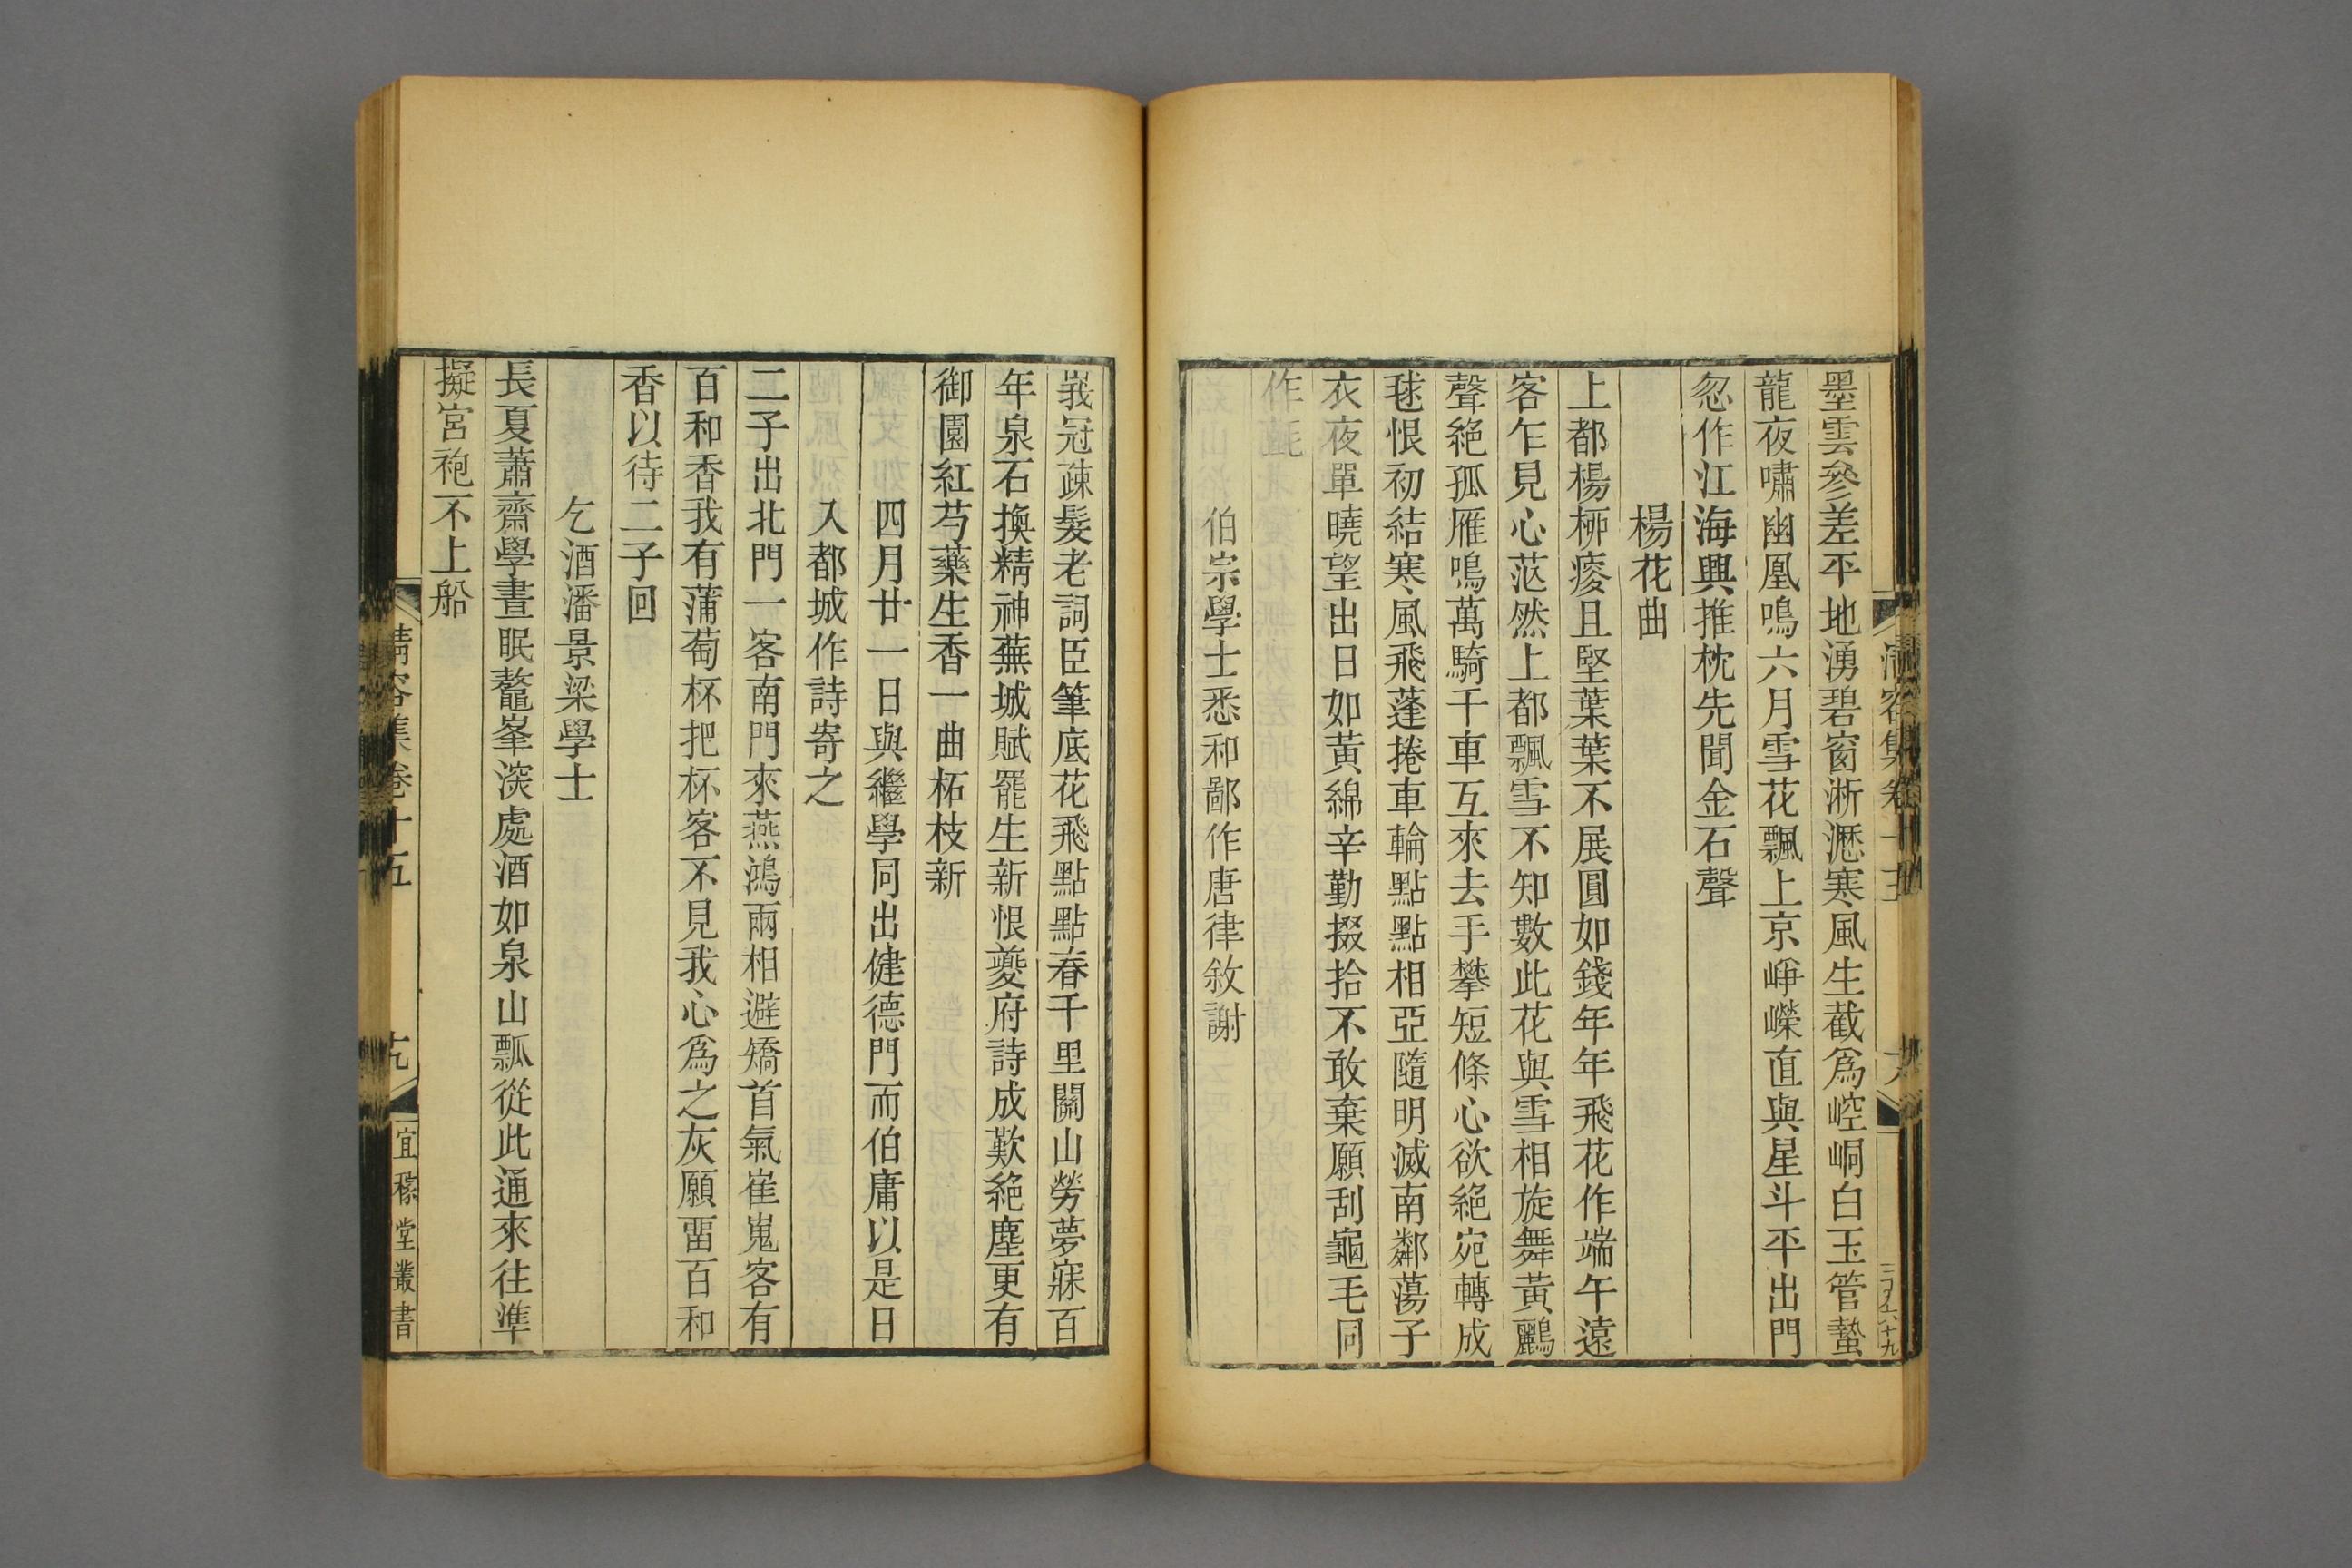 墨雲參差平地湧碧窗淅瀝寒風生截爲崆峒白玉管蟄
龍夜嘯幽凰鳴六月雪花飄上京崢嶸直與星斗平出門
忽作江海興推枕先聞金石聲
楊花曲
上都楊柳痠且堅葉葉不展圓如錢年年飛花作端午遠
客乍見心茫然上都飄雪不知數此花與雪相旋舞黃鸝
聲絶孤雁鳴萬騎千車互來去手攀短條心欲絶宛轉成
毬恨初結寒風飛蓬捲車輪點點相亞隨明滅南鄰蕩子
衣夜單曉望出日如黃綿辛勤掇拾不敢棄願刮龜毛同
作氈
伯宗學士悉和鄙作唐律敘謝
峩冠疎髮老詞臣筆底花飛點點春千里關山勞夢寐百
年泉石換精神蕪城賦罷生新恨夔府詩成歎絶塵更有
御園紅芍藥生香一曲柘枝新
四月廿一日與繼學同出健德門而伯庸以是日
入都城作詩寄之
二子出北門一客南門來燕鴻兩相避矯首氣崔嵬客有
百和香我有蒲萄杯把杯客不見我心爲之灰願畱百和
香以待二子回
乞酒潘景梁學士
長夏蕭齋學晝眠鼇峯深處酒如泉山瓢從此通來往準
擬宮袍不上船
清容集卷十五
宜稼堂叢書